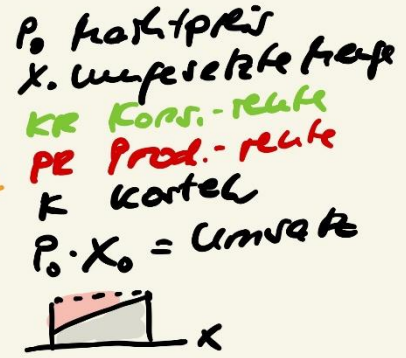 P₀ Marktpreis
X₀ umgesetzte Menge
KR Kons.-rente
PR Prod.-rente
K Kosten
P₀ · X₀ = Umsatz
X